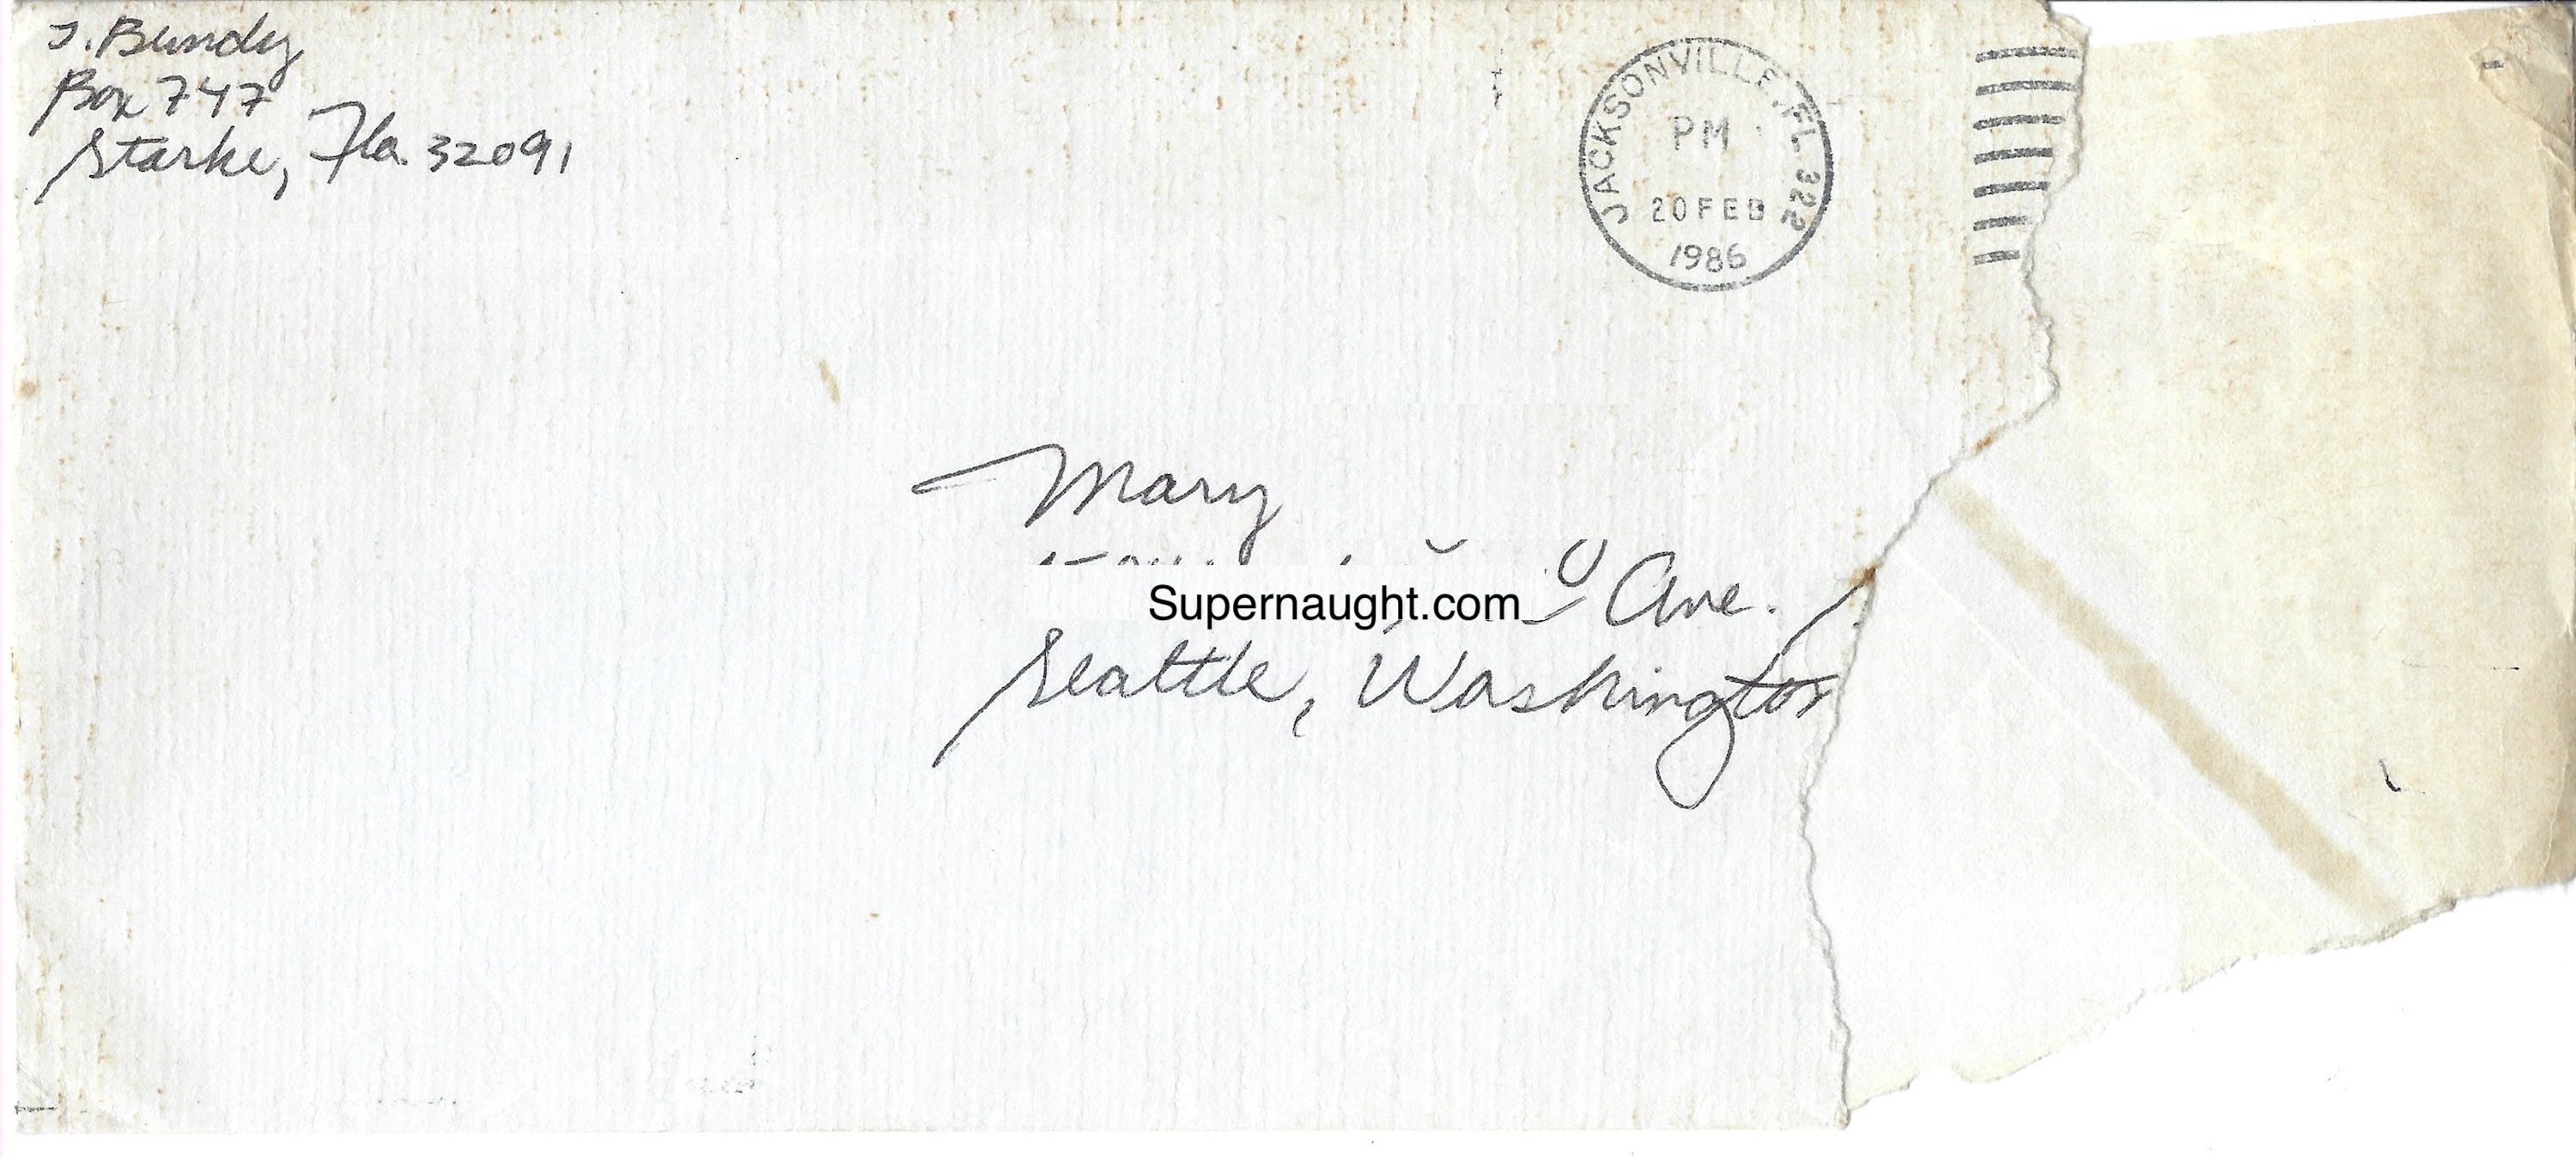 T. Bundy
Box 747
Starke, Fla. 32091
JACKSONVILLE, FL 322
PM
20 FEB
1986
Mary
Ave.
Supernaught.com
Seattle, Washington